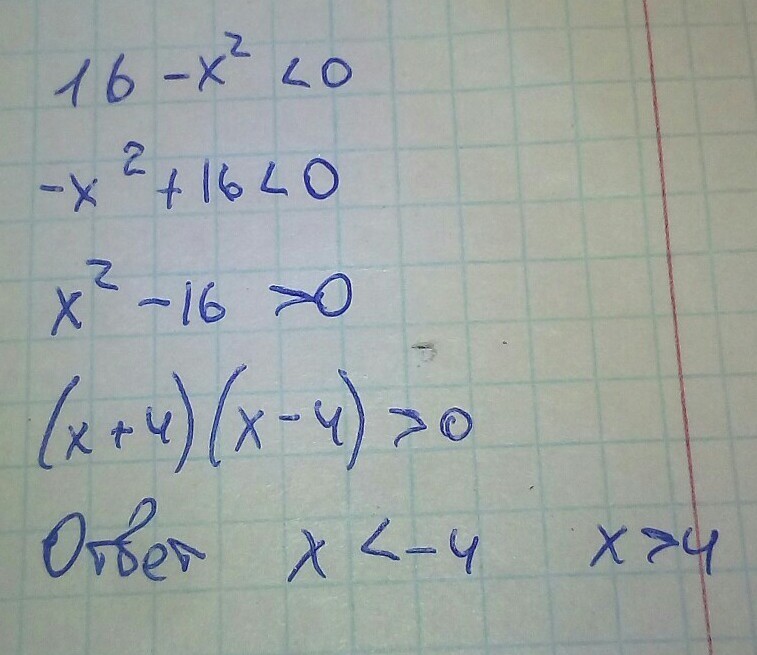 16 -x² <0
-x² +16<0
x² -16 >0
(x+4)(x-4)>0
Ответ x <-4 x>4